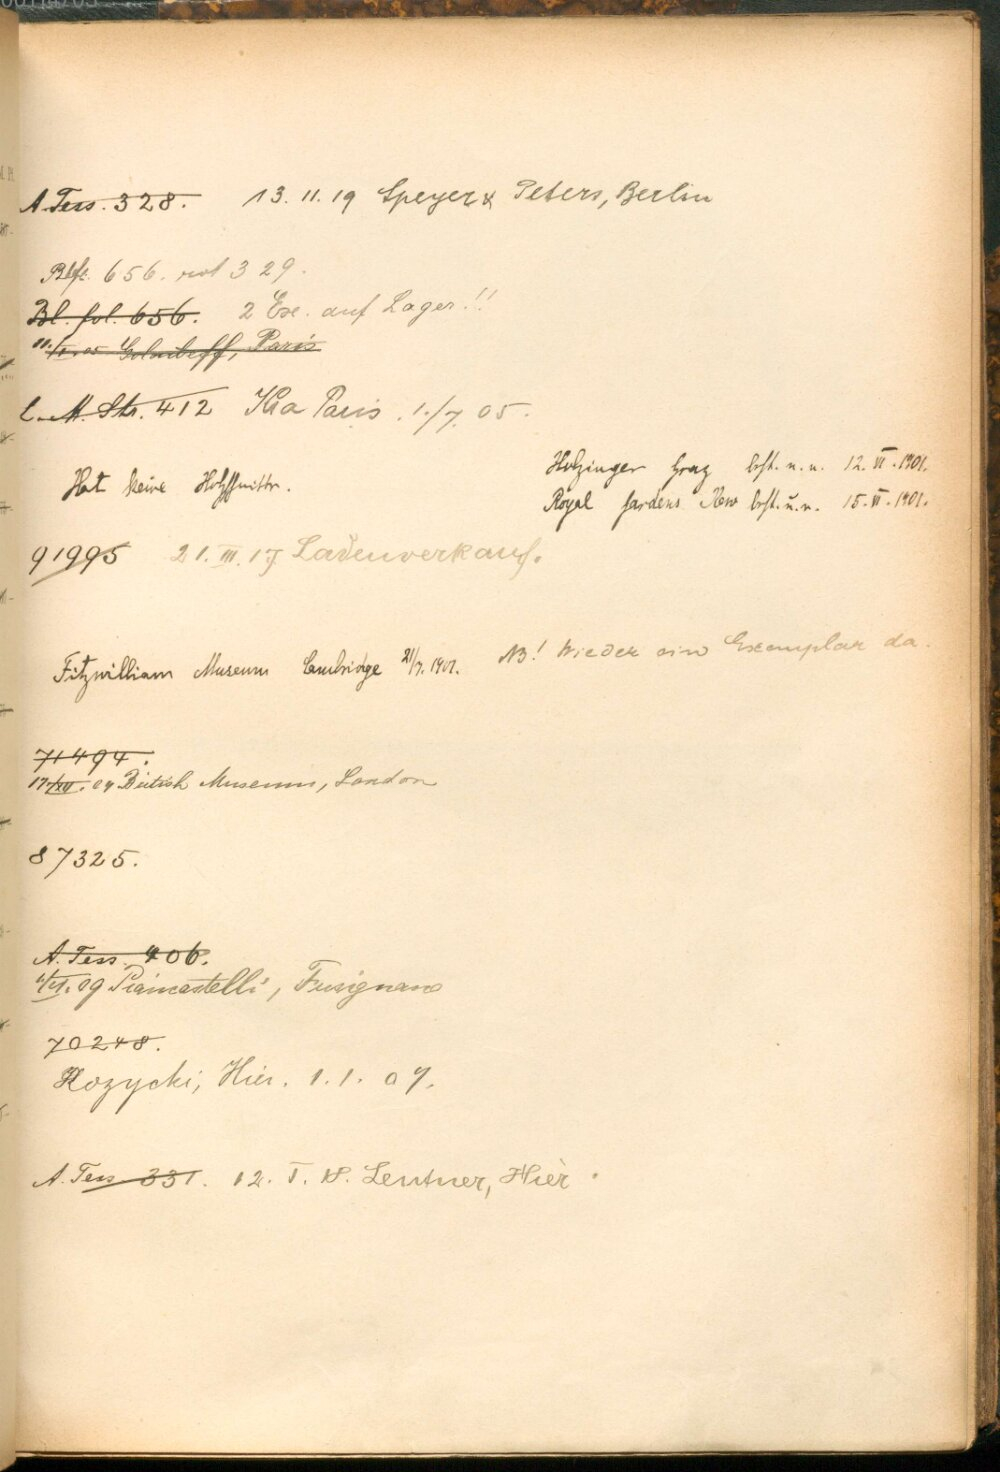 A. Tess. 328. 13. 11. 19 Speyer & Peters, Berlin
656. rot 329.
Bl. fol. 656. 2 Exe. auf Lager!!
Paris
L. M. Str. 412 Kra Paris. 1./7. 05.
Hat keine Holzschnitte.
Holzinger Graz best. u. n. 12. VI. 1901.
Royal Gardens Kew best. u. n. 15. VI. 1901.
91995 21. III. 17 Ladenverkauf.
Fitzwilliam Museum Cambridge 1901.
NB! Wieder ein Exemplar da.
71494.
British Museum, London
87325.
A. Tess. 406.
09 Piancastelli, Fusignano
70248.
Rozycki, Hier. 1. 1. 07.
A. Tess. 331. 12. I. Lentner, Hier.